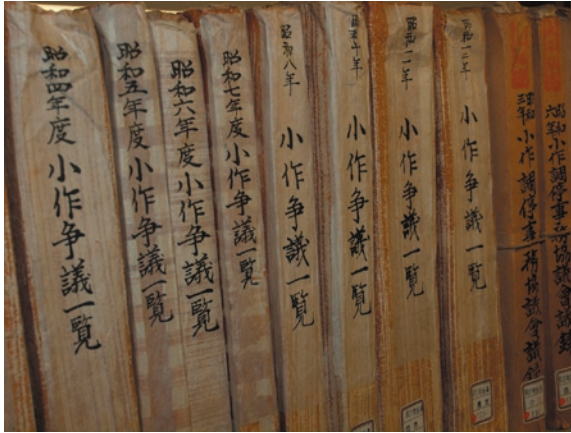 昭和四年度小作争議一覧
昭和五年度小作争議一覧
昭和六年度小作争議一覧
昭和七年度小作争議一覧
昭和八年 小作争議一覧
昭和十年 小作争議一覧
昭和一一年 小作争議一覧
昭和一二年 小作争議一覧
昭和三年 小作調停事務協議會議録
昭和六年 小作調停事務協議會議録